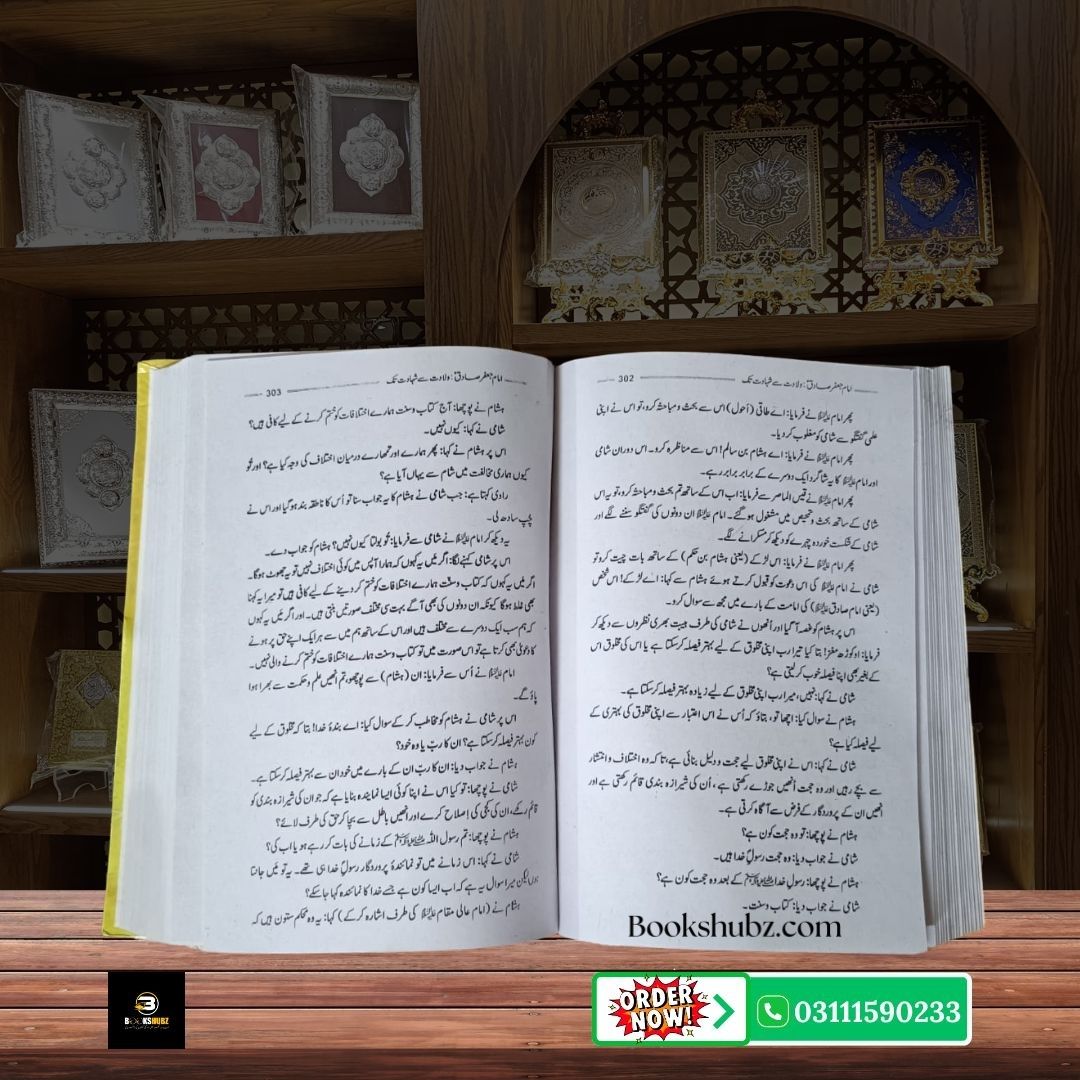 امام جعفر صادقؑ: ولادت سے شہادت تک 302
پھر امام علیہ السلام نے فرمایا: اے طاقی (احول) اس سے بحث و مباحثہ کرو، تو اس نے اپنی
علمی گفتگو سے شامی کو مغلوب کر دیا۔
پھر امام علیہ السلام نے فرمایا: اے ہشام بن سالم! اس سے مناظرہ کرو۔ اس دوران شامی
اور امام علیہ السلام کا یہ شاگرد ایک دوسرے کے برابر برابر رہے۔
پھر امام علیہ السلام نے قیس الماصر سے فرمایا: اب اس کے ساتھ تم بحث و مباحثہ کرو، تو یہ اس
شامی کے ساتھ بحث و تمحیص میں مشغول ہو گئے۔ امام علیہ السلام ان دونوں کی گفتگو سننے لگے اور
شامی کے شکست خوردہ چہرے کو دیکھ کر مسکرانے لگے۔
پھر امام علیہ السلام نے فرمایا: اس لڑکے (یعنی ہشام بن حکم) کے ساتھ بات چیت کرو تو
شامی نے امام علیہ السلام کی اس دعوت کو قبول کرتے ہوئے ہشام سے کہا: اے لڑکے! اس شخص
(یعنی امام صادق علیہ السلام) کی امامت کے بارے میں مجھ سے سوال کرو۔
اس پر ہشام کو غصہ آ گیا اور انھوں نے شامی کی طرف ہیبت بھری نظروں سے دیکھ کر
فرمایا: او کوڑھ مغز! بتا کیا تیرا رب اپنی مخلوق کے لیے بہتر فیصلہ کر سکتا ہے یا اس کی مخلوق اس
کے بغیر بھی اپنا فیصلہ خوب کر لیتی ہے؟
شامی نے کہا: نہیں، میرا رب اپنی مخلوق کے لیے زیادہ بہتر فیصلہ کر سکتا ہے۔
ہشام نے سوال کیا: اچھا تو، بتاؤ کہ اُس نے اس اعتبار سے اپنی مخلوق کی بہتری کے
لیے فیصلہ کیا ہے؟
شامی نے کہا: اس نے اپنی مخلوق لیے حجت و دلیل بنائی ہے، تا کہ وہ اختلاف و انتشار
سے بچے رہیں اور وہ حجت انھیں جوڑے رکھتی ہے، اُن کی شیرازہ بندی قائم رکھتی ہے اور
انھیں ان کے پروردگار کے فرض سے آگاہ کرتی ہے۔
ہشام نے پوچھا: تو وہ حجت کون ہے؟
شامی نے جواب دیا: وہ حجت رسولِ خدا ہیں۔
ہشام نے پوچھا: رسولِ خدا صلی اللہ علیہ وآلہ وسلم کے بعد وہ حجت کون ہے؟
شامی نے جواب دیا: کتاب و سنت۔
Bookshubz.com
امام جعفر صادقؑ: ولادت سے شہادت تک 303
ہشام نے پوچھا: آج کتاب و سنت ہمارے اختلافات کو ختم کرنے کے لیے کافی ہیں؟
شامی نے کہا: کیوں نہیں۔
اس پر ہشام نے کہا: پھر ہمارے اور تمھارے درمیان اختلاف کی وجہ کیا ہے؟ اور تُو
کیوں ہماری مخالفت میں شام سے یہاں آیا ہے؟
راوی کہتا ہے: جب شامی نے ہشام کا یہ جواب سنا تو اُس کا ناطقہ بند ہو گیا اور اس نے
چپ سادھ لی۔
یہ دیکھ کر امام علیہ السلام نے شامی سے فرمایا: تُو بولتا کیوں نہیں؟ ہشام کو جواب دے۔
اس پر شامی کہنے لگا: اگر میں یہ کہوں کہ ہمارا آپس میں کوئی اختلاف نہیں تو یہ جھوٹ ہوگا۔
اگر میں یہ کہوں کہ کتاب و سنت ہمارے اختلافات کو ختم کر دینے کے لیے کافی ہیں تو میرا یہ کہنا
بھی غلط ہوگا کیونکہ ان دونوں کی بھی آگے بہت سی مختلف صورتیں بنتی ہیں۔ اور اگر میں یہ کہوں
کہ ہم سب ایک دوسرے سے مختلف ہیں اور اس کے ساتھ ہم میں سے ہر ایک اپنے حق پر ہونے
کا دعویٰ بھی کرتا ہے تو اس صورت میں تو کتاب و سنت ہمارے اختلافات کو ختم کرنے والی نہیں۔
امام علیہ السلام نے اُس سے فرمایا: ان (ہشام) سے پوچھو، تم انھیں علم و حکمت سے بھرا ہوا
پاؤ گے۔
اس پر شامی نے ہشام کو مخاطب کر کے سوال کیا: اے بندۂ خدا! بتا کہ مخلوق کے لیے
کون بہتر فیصلہ کر سکتا ہے؟ ان کا ربّ یا وہ خود؟
ہشام نے جواب دیا: ان کا ربّ ان کے بارے میں خود ان سے بہتر فیصلہ کر سکتا ہے۔
شامی نے پوچھا: تو کیا اس نے اپنا کوئی ایسا نمایندہ بنایا ہے کہ جو ان کی شیرازہ بندی کو
قائم رکھے، ان کی کجی کی اصلاح کرے اور انھیں باطل سے بچا کر حق کی طرف لائے؟
ہشام نے پوچھا: تم رسول اللہ صلی اللہ علیہ وآلہ وسلم کے زمانے کی بات کر رہے ہو یا اب کی؟
شامی نے کہا: اس زمانے میں تو نمائندۂ پروردگار رسولِ خدا ہی تھے۔ یہ تو میں جانتا
ہوں لیکن میرا سوال یہ ہے کہ اب ایسا کون ہے جسے خدا کا نمائندہ کہا جا سکے؟
ہشام نے (امام عالی مقام علیہ السلام کی طرف اشارہ کر کے) کہا: یہ وہ محکم ستون ہیں کہ
BOOKSHUBZ
ORDER NOW!
03111590233